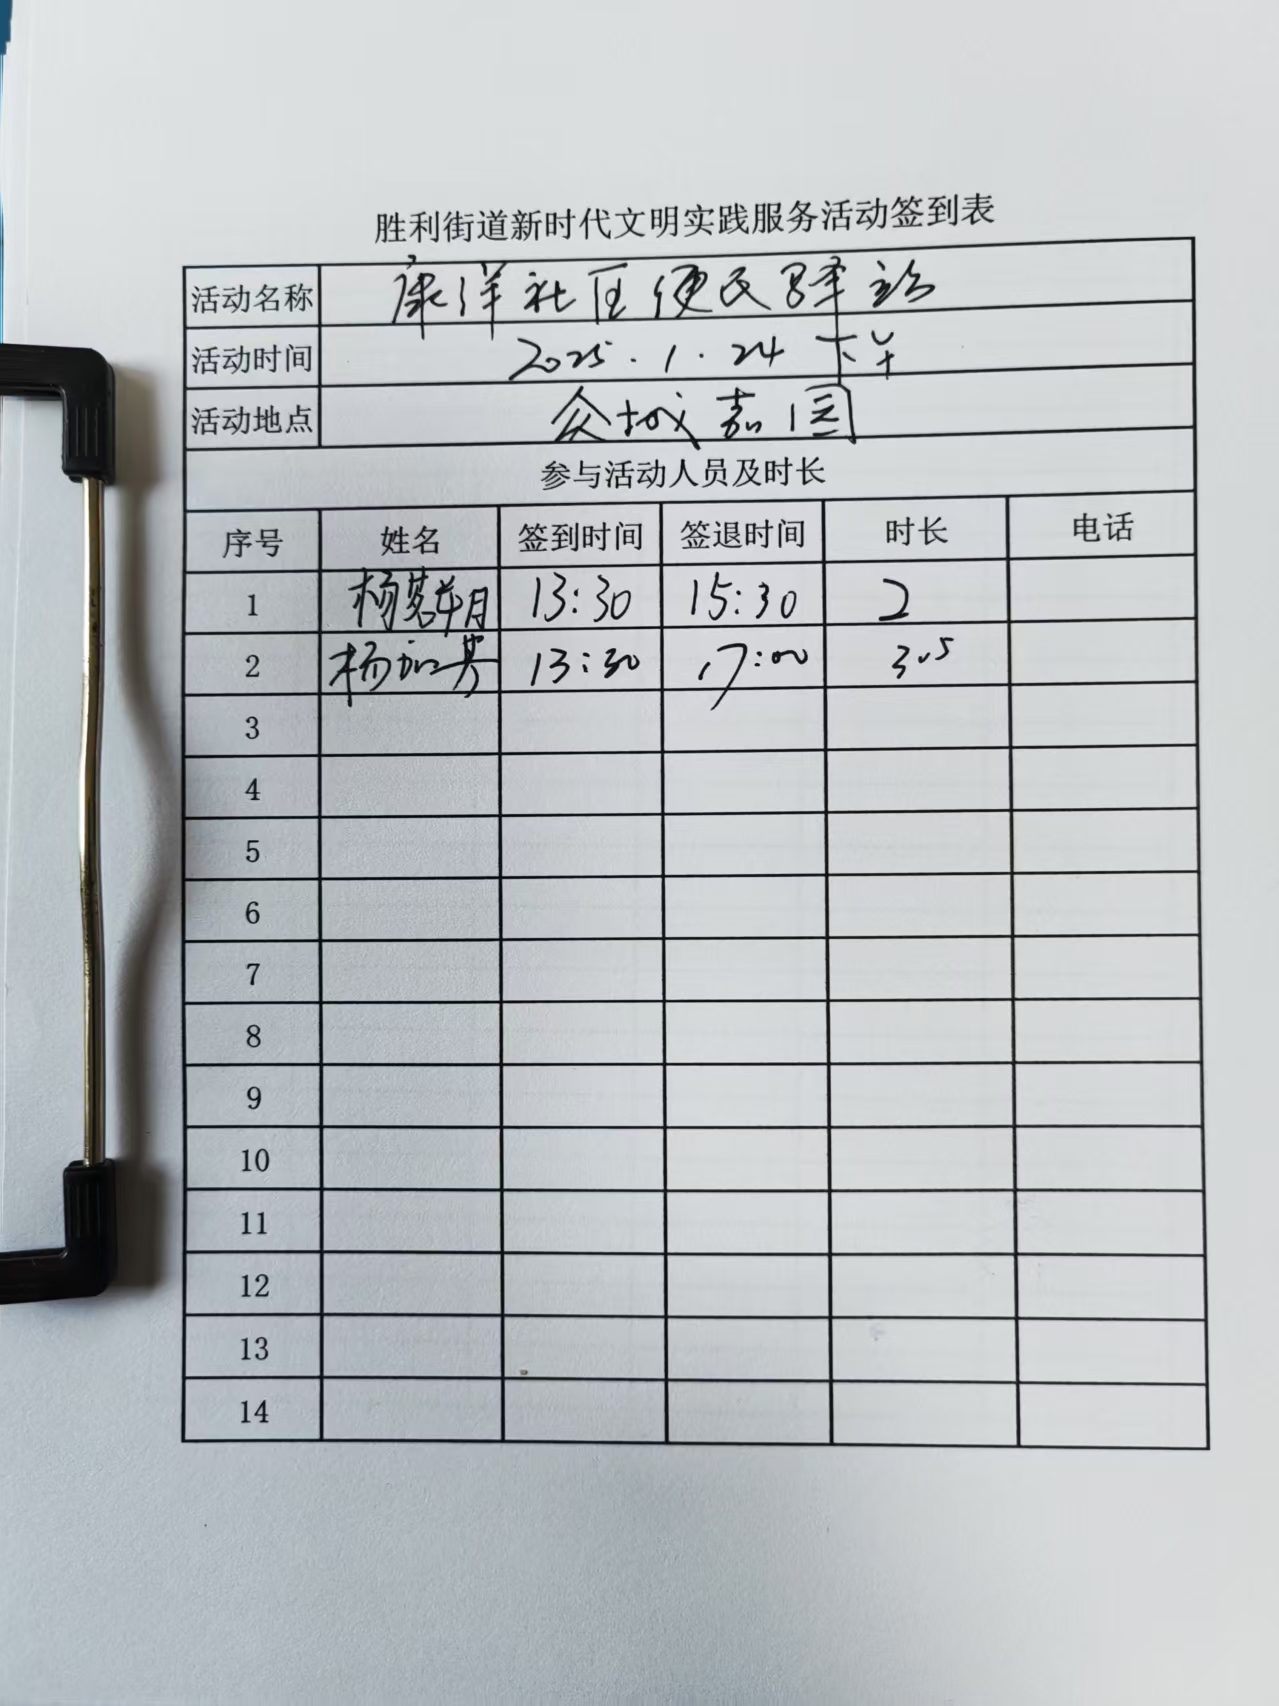 胜利街道新时代文明实践服务活动签到表
活动名称 康洋社区便民驿站
活动时间 2025.1.24 下午
活动地点 众城嘉园
参与活动人员及时长
序号 姓名 签到时间 签退时间 时长 电话
1 杨茗 13:30 15:30 2
2 杨 英 13:30 17:00 3.5
3
4
5
6
7
8
9
10
11
12
13
14